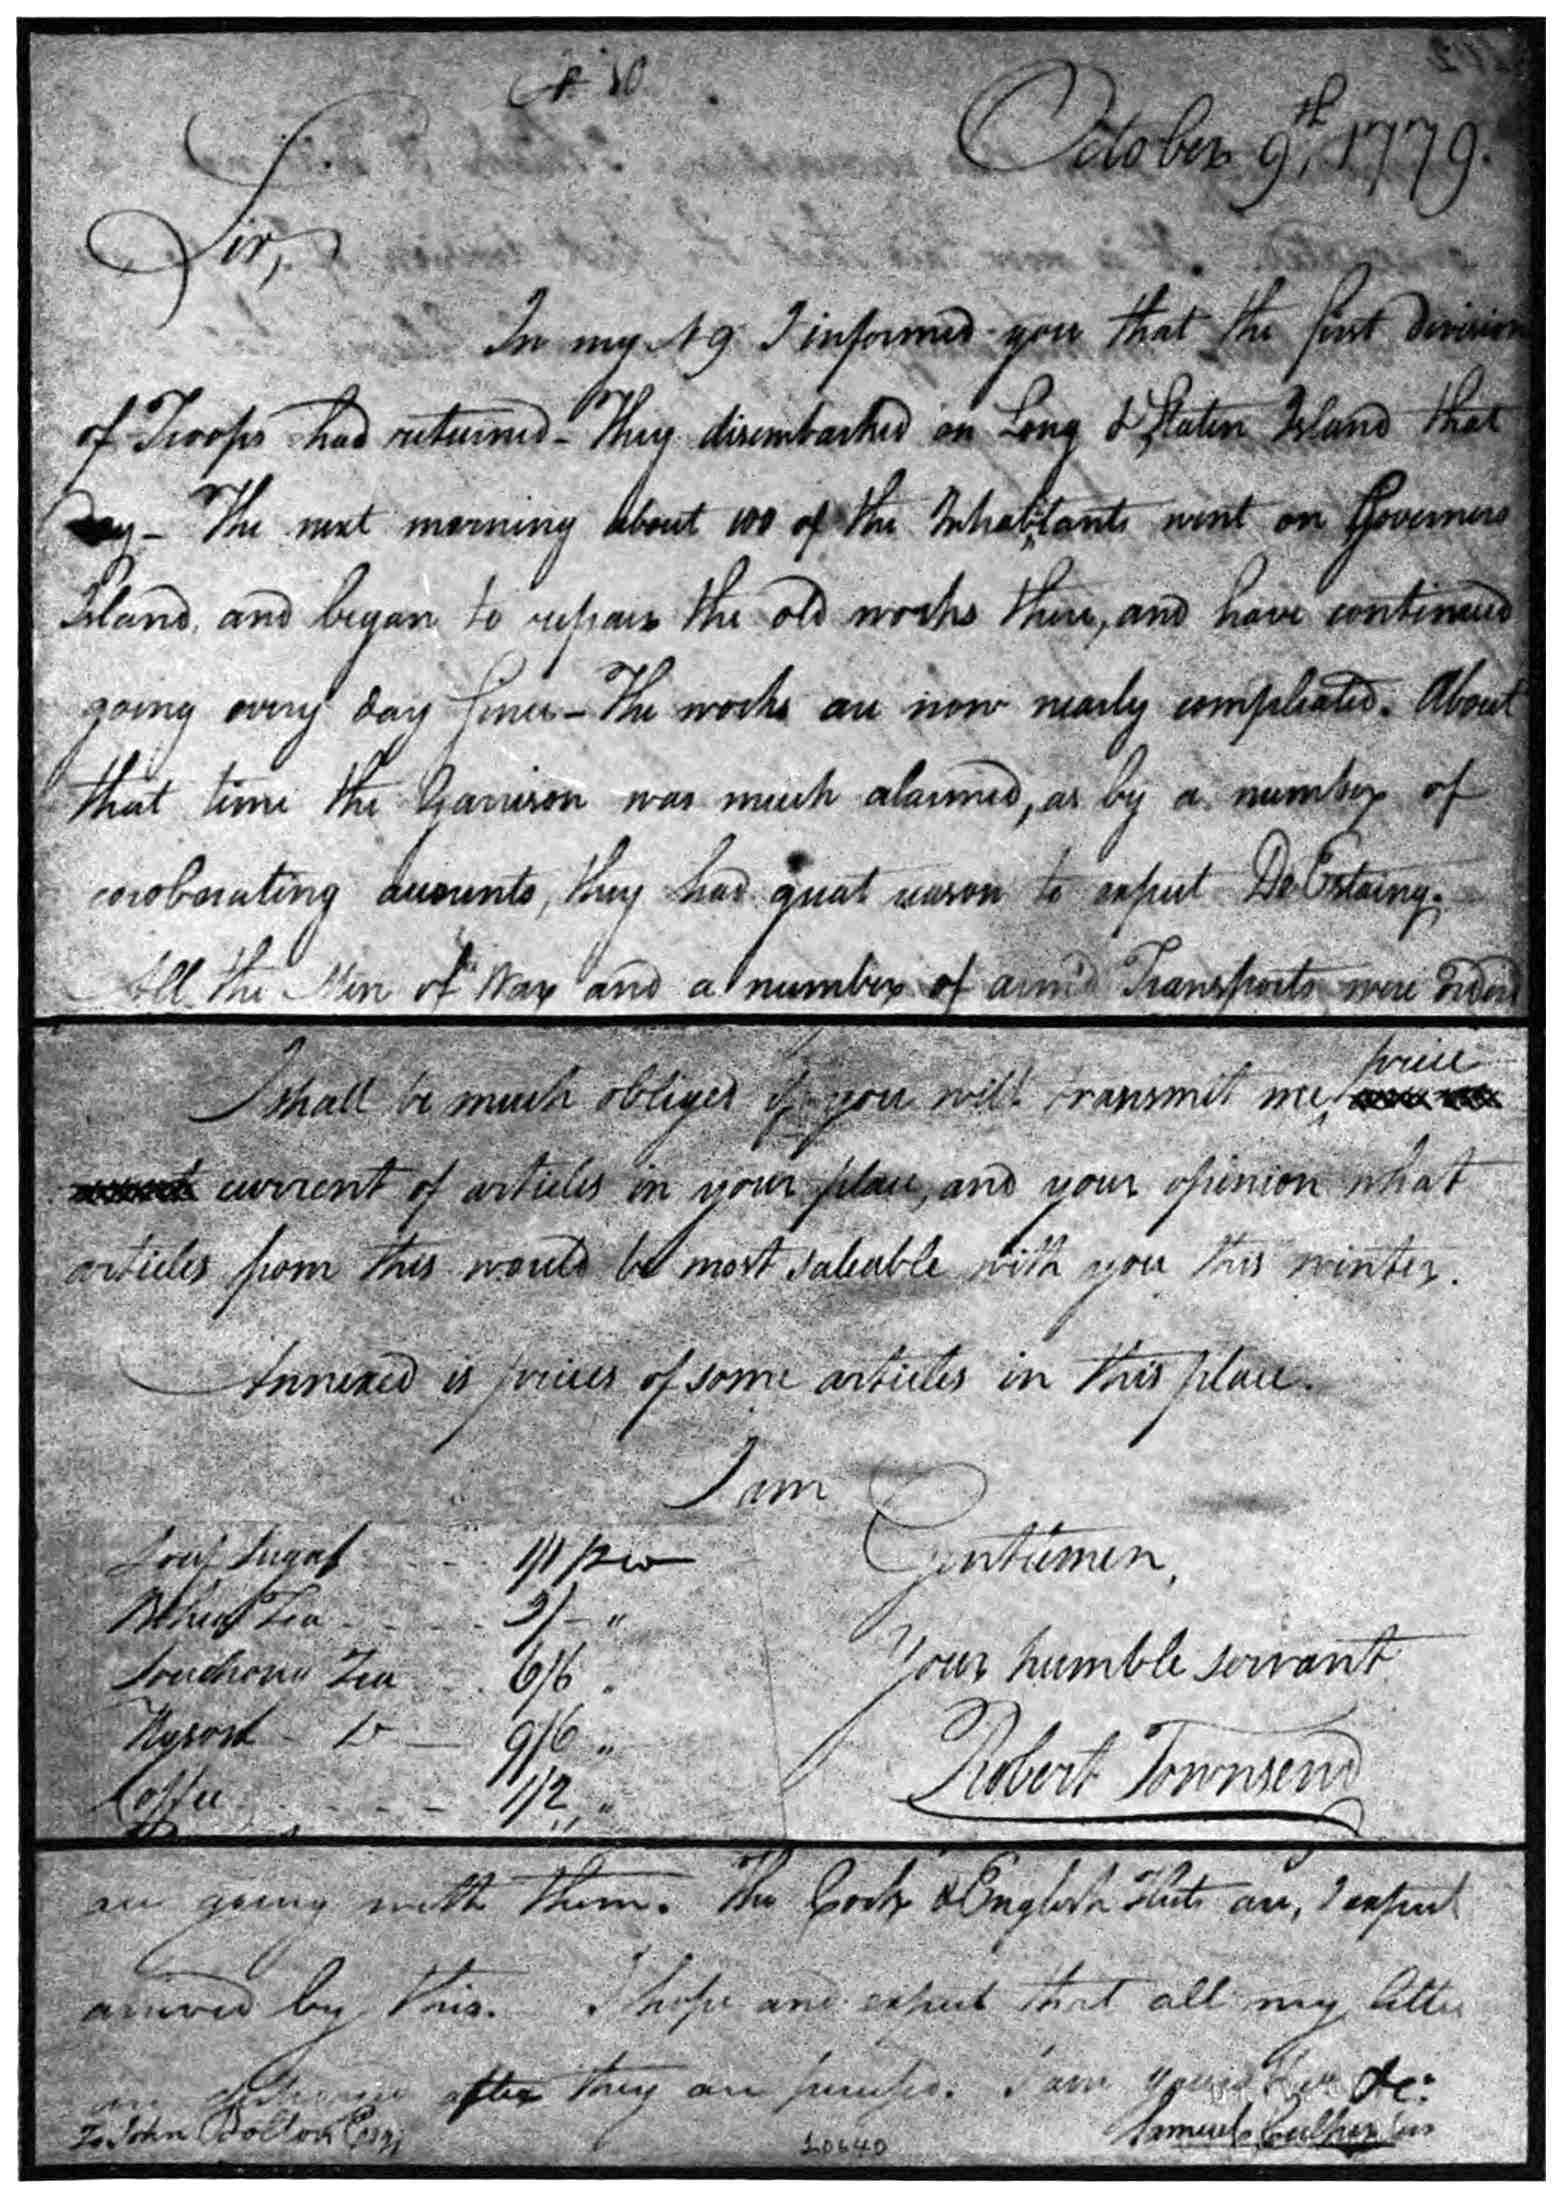 N. 10.
October 9th, 1779.
Sir,
In my N 9 I informed you that the first division
of Troops had returned – They disembarked on Long & Staten Island that
Day – The next morning about 100 of the Inhabitants went on Governors
Island, and began to repair the old works there, and have continued
going every day since – The works are now nearly compleated. About
that time the Garrison was much alarmed, as by a number of
coroborating accounts, they had great reason to expect De Estaing.
All the Men of War and a number of arm'd Transports were order'd
I shall be much obliged if you will transmit me, price
current of articles in your place, and your opinion what
articles from this would be most saleable with you this winter.
Annexed is prices of some articles in this place.
I am
Gentlemen,
Your humble servant
Robert Townsend
Loaf Sugar - - 1/1
Bohea Tea - - - 3/- "
Souchong Tea - . 6/6 "
Hyson - Do - 9/6 "
Coffee - - - - 1/2 "
are going with them. The Cork & English fleets are, I expect
arrived by this. I hope and expect that all my letters
are after they are perused. I am yours &c:
To John Bolton Esqr.
20640
Samuel Culper Jun